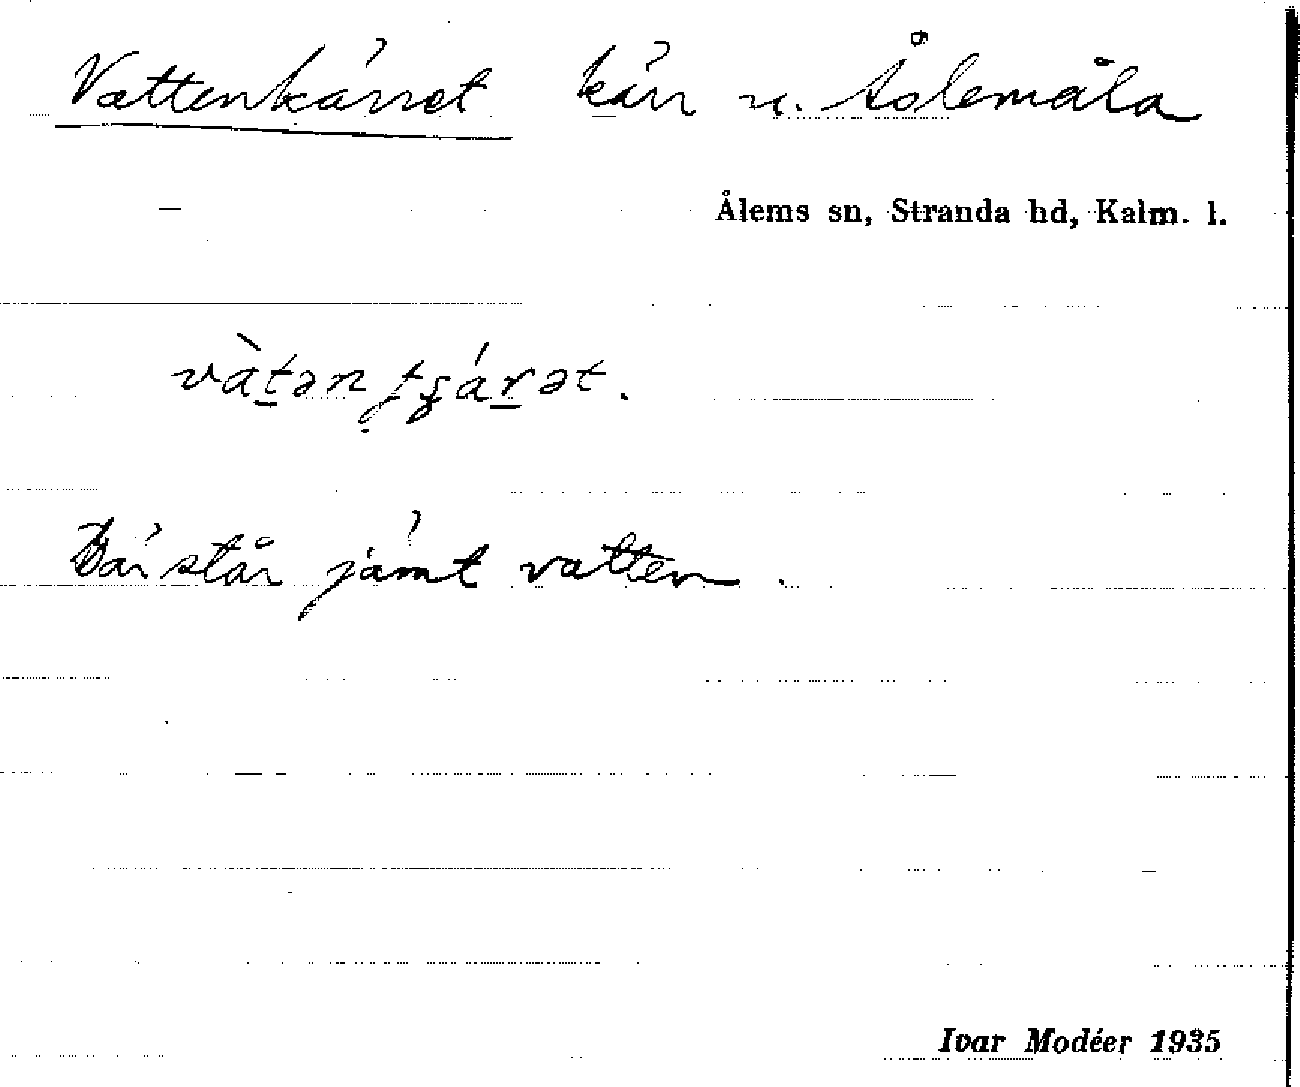 Vattenkärret kärr u. Ålemåla
Ålems sn, Stranda hd, Kalm. l.
Där står jämt vatten.
Ivar Modéer 1935